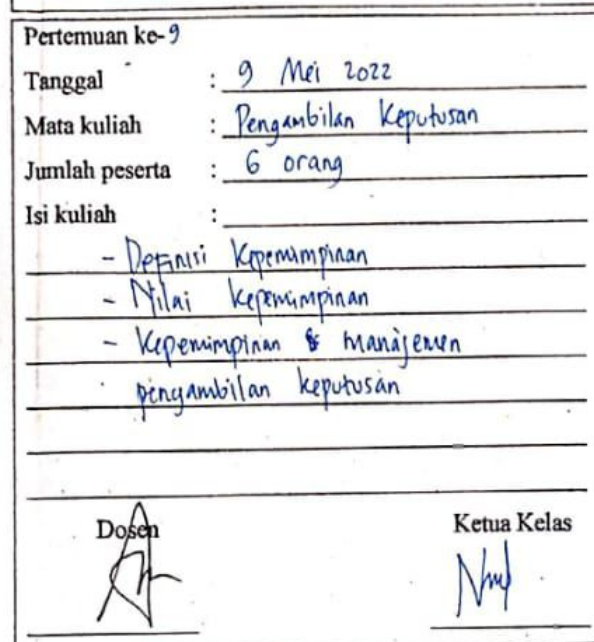 Pertemuan ke-9
Tanggal : 9 Mei 2022
Mata kuliah : Pengambilan Keputusan
Jumlah peserta : 6 orang
Isi kuliah :
- Definisi Kepemimpinan
- Nilai Kepemimpinan
- Kepemimpinan & Manajemen
pengambilan keputusan
Dosen Ketua Kelas